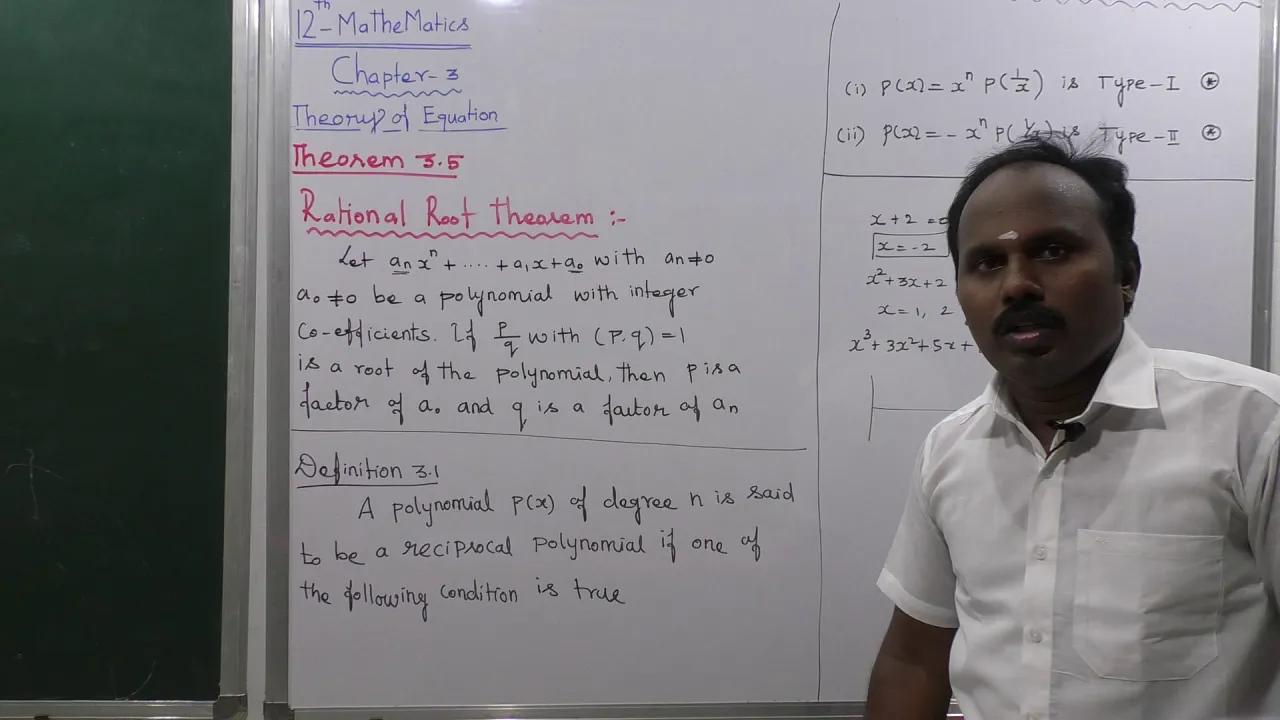 12th-Mathematics
Chapter-3
Theory of Equation
Theorem 3.5
Rational Root Theorem :-
Let aₙxⁿ+.....+a₁x+a₀ with an≠0
a₀≠0 be a polynomial with integer
Co-efficients. If p/q with (p.q)=1
is a root of the polynomial, then p is a
factor of a₀ and q is a factor of aₙ
Definition 3.1
A polynomial p(x) of degree n is said
to be a reciprocal polynomial if one of
the following condition is true
(i) p(x)= xⁿ p(1/x) is Type-I
(ii) p(x)= - xⁿ p(1/x) is Type-II
x+2 =0
x=-2
x²+3x+2
x=1, 2
x³+3x²+5x+